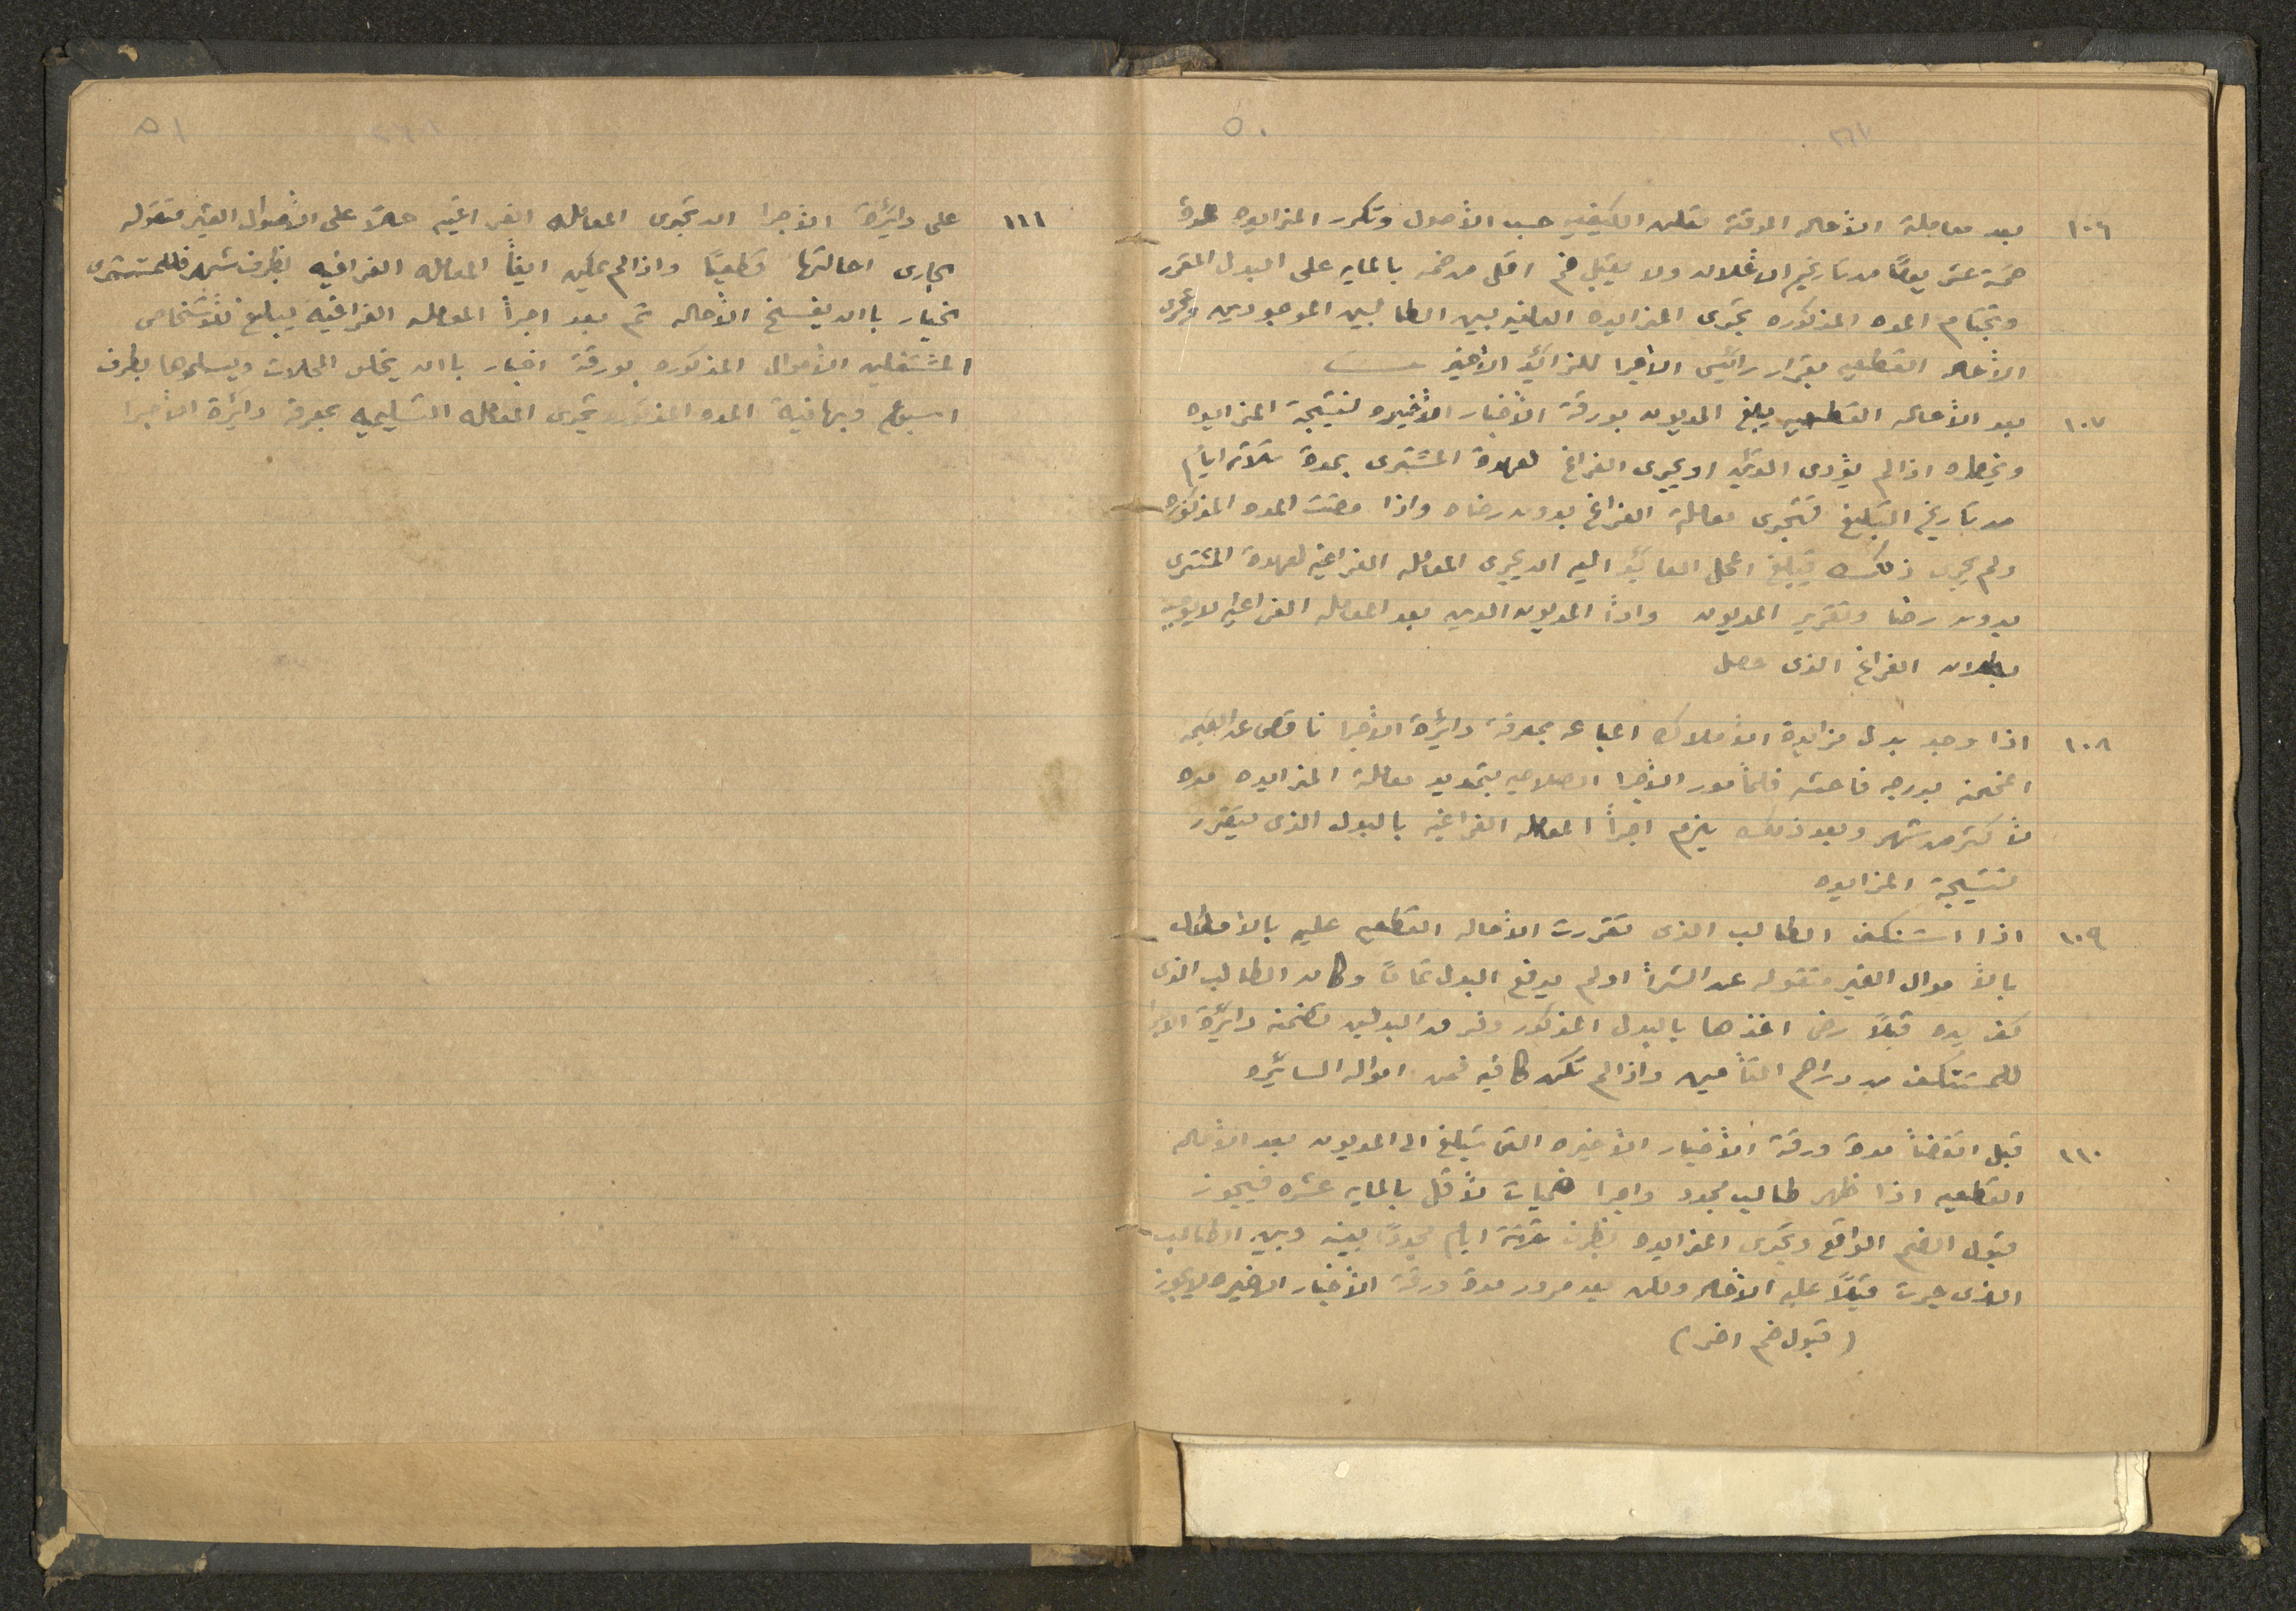 ٥٠
١٠٦ بعد معاملة الأحاله الموقته تعلن الكيفيه حسب الأصول وتكرر المزايده لمدة
خمسة عشر يومًا من تاريخ الاعلان ولا يقبل ضم اقل من خمسه بالمايه على البدل المقرر
وبختام المده المذكوره تجرى المزايده العلنيه بين الطالبين الموجودين وتجرى
الأحاله القطعيه بقرار رائيس الأجرا للزائيد الاخير
١٠٧ بعد الأحاله القطعيه يبلغ المديون بورقة الأخبار الأخيره نتيجة المزايده
ويخطره اذا لم يؤدى الدين او يجرى الفراغ لعهدة المشترى بمدة ثلاثة ايام
من تاريخ التبليغ فتجرى معاملة الفراغ بدون رضاه واذا مضت المده المذكوره
ولم يجرى ذلك فيبلغ المحل العائيد اليه ان يجرى المعامله الفراغيه لعهدة المشترى
بدون رضا وتقرير المديون واداأ المديون الدين بعد المعامله الفراغيه لا يوجب
بطلان الفراغ الذى حصل
١٠٨ اذا وجد بدل مزايدة الأملاك المباعه بمعرفة دائرة الأجرا ناقص عن القيمه
المخمنه بدرجه فاحشه فلمأمور الأجرا الصلاحيه بتمديد معاملة المزايده مده
لأكثر من شهر وبعد ذلك يلزم اجراأ المعامله الفراغيه بالبدل الذى يتقرر
بنتيجة المزايده
١٠٩ اذا استنكف الطالب الذى تقررت الأحاله القطعيه عليه
بالأموال الغير منقوله عن الشراأ او لم يدفع البدل تمامًا وكان الطالب الذى
كف يده قبلاً رضى اخذها بالبدل المذكور وفرق البدلين تضمنه دائرة الأجرا
للمستنكف من دراهم التأمين واذا لم تكن كافيه فمن امواله السائيره
١١٠ قبل انقضاأ مدة ورقة الأخبار الأخيره التى تبلغ الى المديون بعد الأحاله
القطعيه اذا ظهر طالب مجدد واجرا ضميات لأقل بالمايه عشره فيجوز
قبول الضم الواقع وتجرى المزايده بظرف ثلاثة ايام مجددًا بينه وبين الطالب
الذى جرت قبلاً عليه الأحاله ولكن بعد مرور مدة ورقة الأخبار الاخيره لا يجوز
(قبول ضم اخر)
٥١
١١١ على دائرة الأجرا ان تجرى المعامله الفراغيه حالاً على الأموال الغير منقوله
الجارى احالتها قطعيًا واذا لم يمكن ايفاأ المعامله الفراغيه بظرف شهر فللمشترى
الخيار باان يفسخ الأحاله ثم بعد اجراأ المعامله الفراغيه يبلغ للأشخاص
المشتغلين الأموال المذكوره بورقة اخبار باان يخلو المحلات ويسلموها بظرف
اسبوع وبنهاية المده المذكوره تجرى المعامله التسليميه بمعرفة دائرة الأجرا